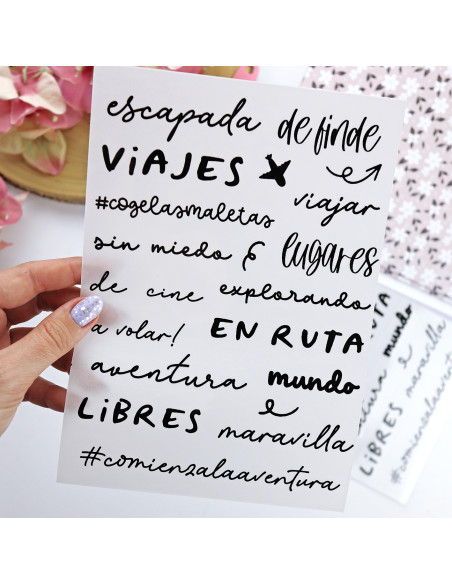 escapada de finde
ViAJES
viajar
#cogelasmaletas
sin miedo
lugares
de cine explorando
a volar! EN RUTA
aventura mundo
LiBRES maravilla
#comienzalaaventura
mundo
maravilla
LiBRES